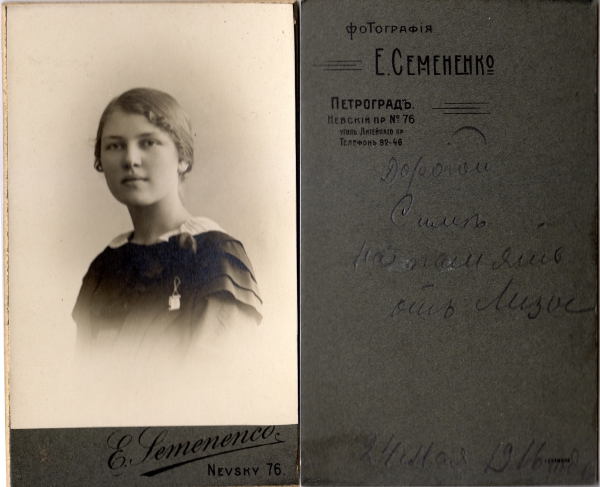 E. Semenenco.
NEVSKY 76.
фотографія
Е. Семененко
Петроградъ.
Невскій пр № 76
уголъ Литейнаго пр
Телефонъ 82-46
Дорогой
Симѣ
на память
отъ Лизы
24 мая 1916 год